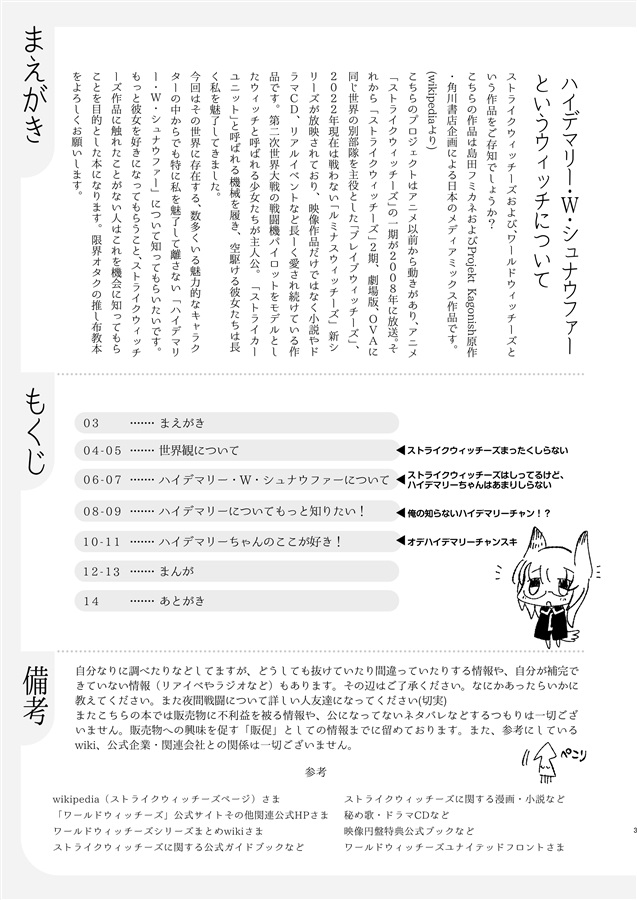 まえがき
ハイデマリー・W・シュナウファー
というウィッチについて
ストライクウィッチーズおよび、ワールドウィッチーズと
いう作品をご存知でしょうか？
こちらの作品は島田フミカネおよびProjekt Kagonish原作
・角川書店企画による日本のメディアミックス作品です。
(wikipediaより)
こちらのプロジェクトはアニメ以前から動きがあり、アニメ
「ストライクウィッチーズ」の一期が2008年に放送。そ
れから「ストライクウィッチーズ」2期、劇場版、OVAに
同じ世界の別部隊を主役とした「ブレイブウィッチーズ」、
2022年現在は戦わない「ルミナスウィッチーズ」新シ
リーズが放映されており、映像作品だけではなく小説やド
ラマCD、リアルイベントなど長ーく愛され続けている作
品です。第二次世界大戦の戦闘機パイロットをモデルとし
たウィッチと呼ばれる少女たちが主人公。「ストライカー
ユニット」と呼ばれる機械を履き、空駆ける彼女たちは長
く私を魅了してきました。
今回はその世界に存在する、数多くいる魅力的なキャラク
ターの中からでも特に私を魅了して離さない「ハイデマリ
ー・W・シュナウファー」について知ってもらいたいです。
もっと彼女を好きになってもらうこと、ストライクウィッチ
ーズ作品に触れたことがない人はこれを機会に知ってもら
ことを目的とした本になります。限界オタクの推し布教本
をよろしくお願いします。
もくじ
03 ······· まえがき
04-05 ······· 世界観について
◀ストライクウィッチーズまったくしらない
06-07 ······· ハイデマリー・W・シュナウファーについて
◀ストライクウィッチーズはしってるけど、
ハイデマリーちゃんはあまりしらない
08-09 ······· ハイデマリーについてもっと知りたい！
◀俺の知らないハイデマリーチャン！？
10-11 ······· ハイデマリーちゃんのここが好き！
◀オデハイデマリーチャンスキ
12-13 ······· まんが
14 ······· あとがき
備考
自分なりに調べたりなどしてますが、どうしても抜けていたり間違っていたりする情報や、自分が補完で
きていない情報（リアイベやラジオなど）もあります。その辺はご了承ください。なにかあったらいかに
教えてください。また夜間戦闘について詳しい人友達になってください(切実)
またこちらの本では販売物に不利益を被る情報や、公になってないネタバレなどするつもりは一切ござ
いません。販売物への興味を促す「販促」としての情報までに留めております。また、参考にしている
wiki、公式企業・関連会社との関係は一切ございません。
ペこり
参考
wikipedia（ストライクウィッチーズページ）さま
「ワールドウィッチーズ」公式サイトその他関連公式HPさま
ワールドウィッチーズシリーズまとめwikiさま
ストライクウィッチーズに関する公式ガイドブックなど
ストライクウィッチーズに関する漫画・小説など
秘め歌・ドラマCDなど
映像円盤特典公式ブックなど
ワールドウィッチーズユナイテッドフロントさま
3